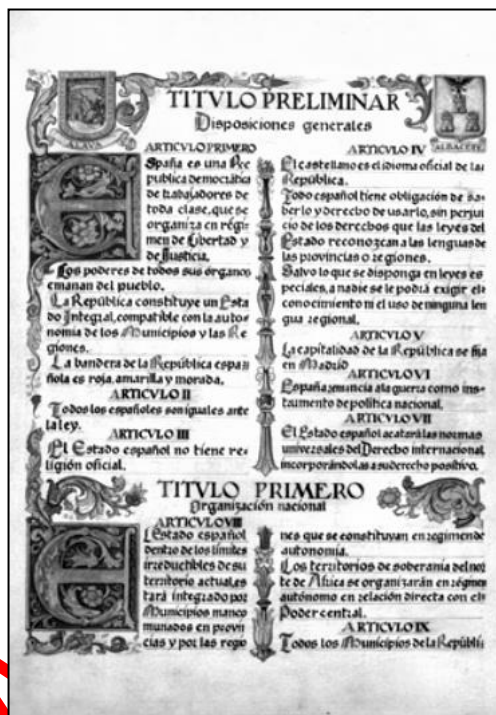 TITVLO PRELIMINAR
Disposiciones generales
ALAVA
ALBACETE
ARTICVLO PRIMERO
España es una Re
publica democratica
de trabajadores de
toda clase, que se
organiza en régi=
men de Libertad y
de Justicia.
Los poderes de todos sus órganos
emanan del pueblo.
La República constituye un Esta
do Integral, compatible con la auto=
nomia de los Municipios y las Re
giones.
La bandera de la República espa=
ñola es roja, amarilla y morada.
ARTICVLO II
Todos los españoles son iguales ante
la ley.
ARTICVLO III
El Estado español no tiene re=
ligión oficial.
ARTICVLO IV
El castellano es el idioma oficial de la
República.
Todo español tiene obligación de sa=
berlo y derecho de usarlo, sin perjui
cio de los derechos que las leyes del
Estado reconozcan a las lenguas de
las provincias o regiones.
Salvo lo que se disponga en leyes es
peciales, a nadie se le podrá exigir el
conocimiento ni el uso de ninguna len
gua regional.
ARTICVLO V
La capitalidad de la República se fija
en Madrid
ARTICVLO VI
España renuncia a la guerra como ins=
trumento de política nacional.
ARTICVLO VII
El Estado español acatará las normas
universales del Derecho internacional
incorporándolas a su derecho positivo.
TITVLO PRIMERO
Organización nacional
ARTICVLO VIII
El Estado español
dentro de los límites
irreductibles de su
territorio actual es
tará integrado por
Municipios manco
munados en provin
cias y por las regio
nes que se constituyan en regimen de
autonomia.
Los territorios de soberania del nor
te de Africa se organizarán en régimen
autónomo en relación directa con el
Poder central.
ARTICVLO IX
Todos los Municipios de la Repúbli=